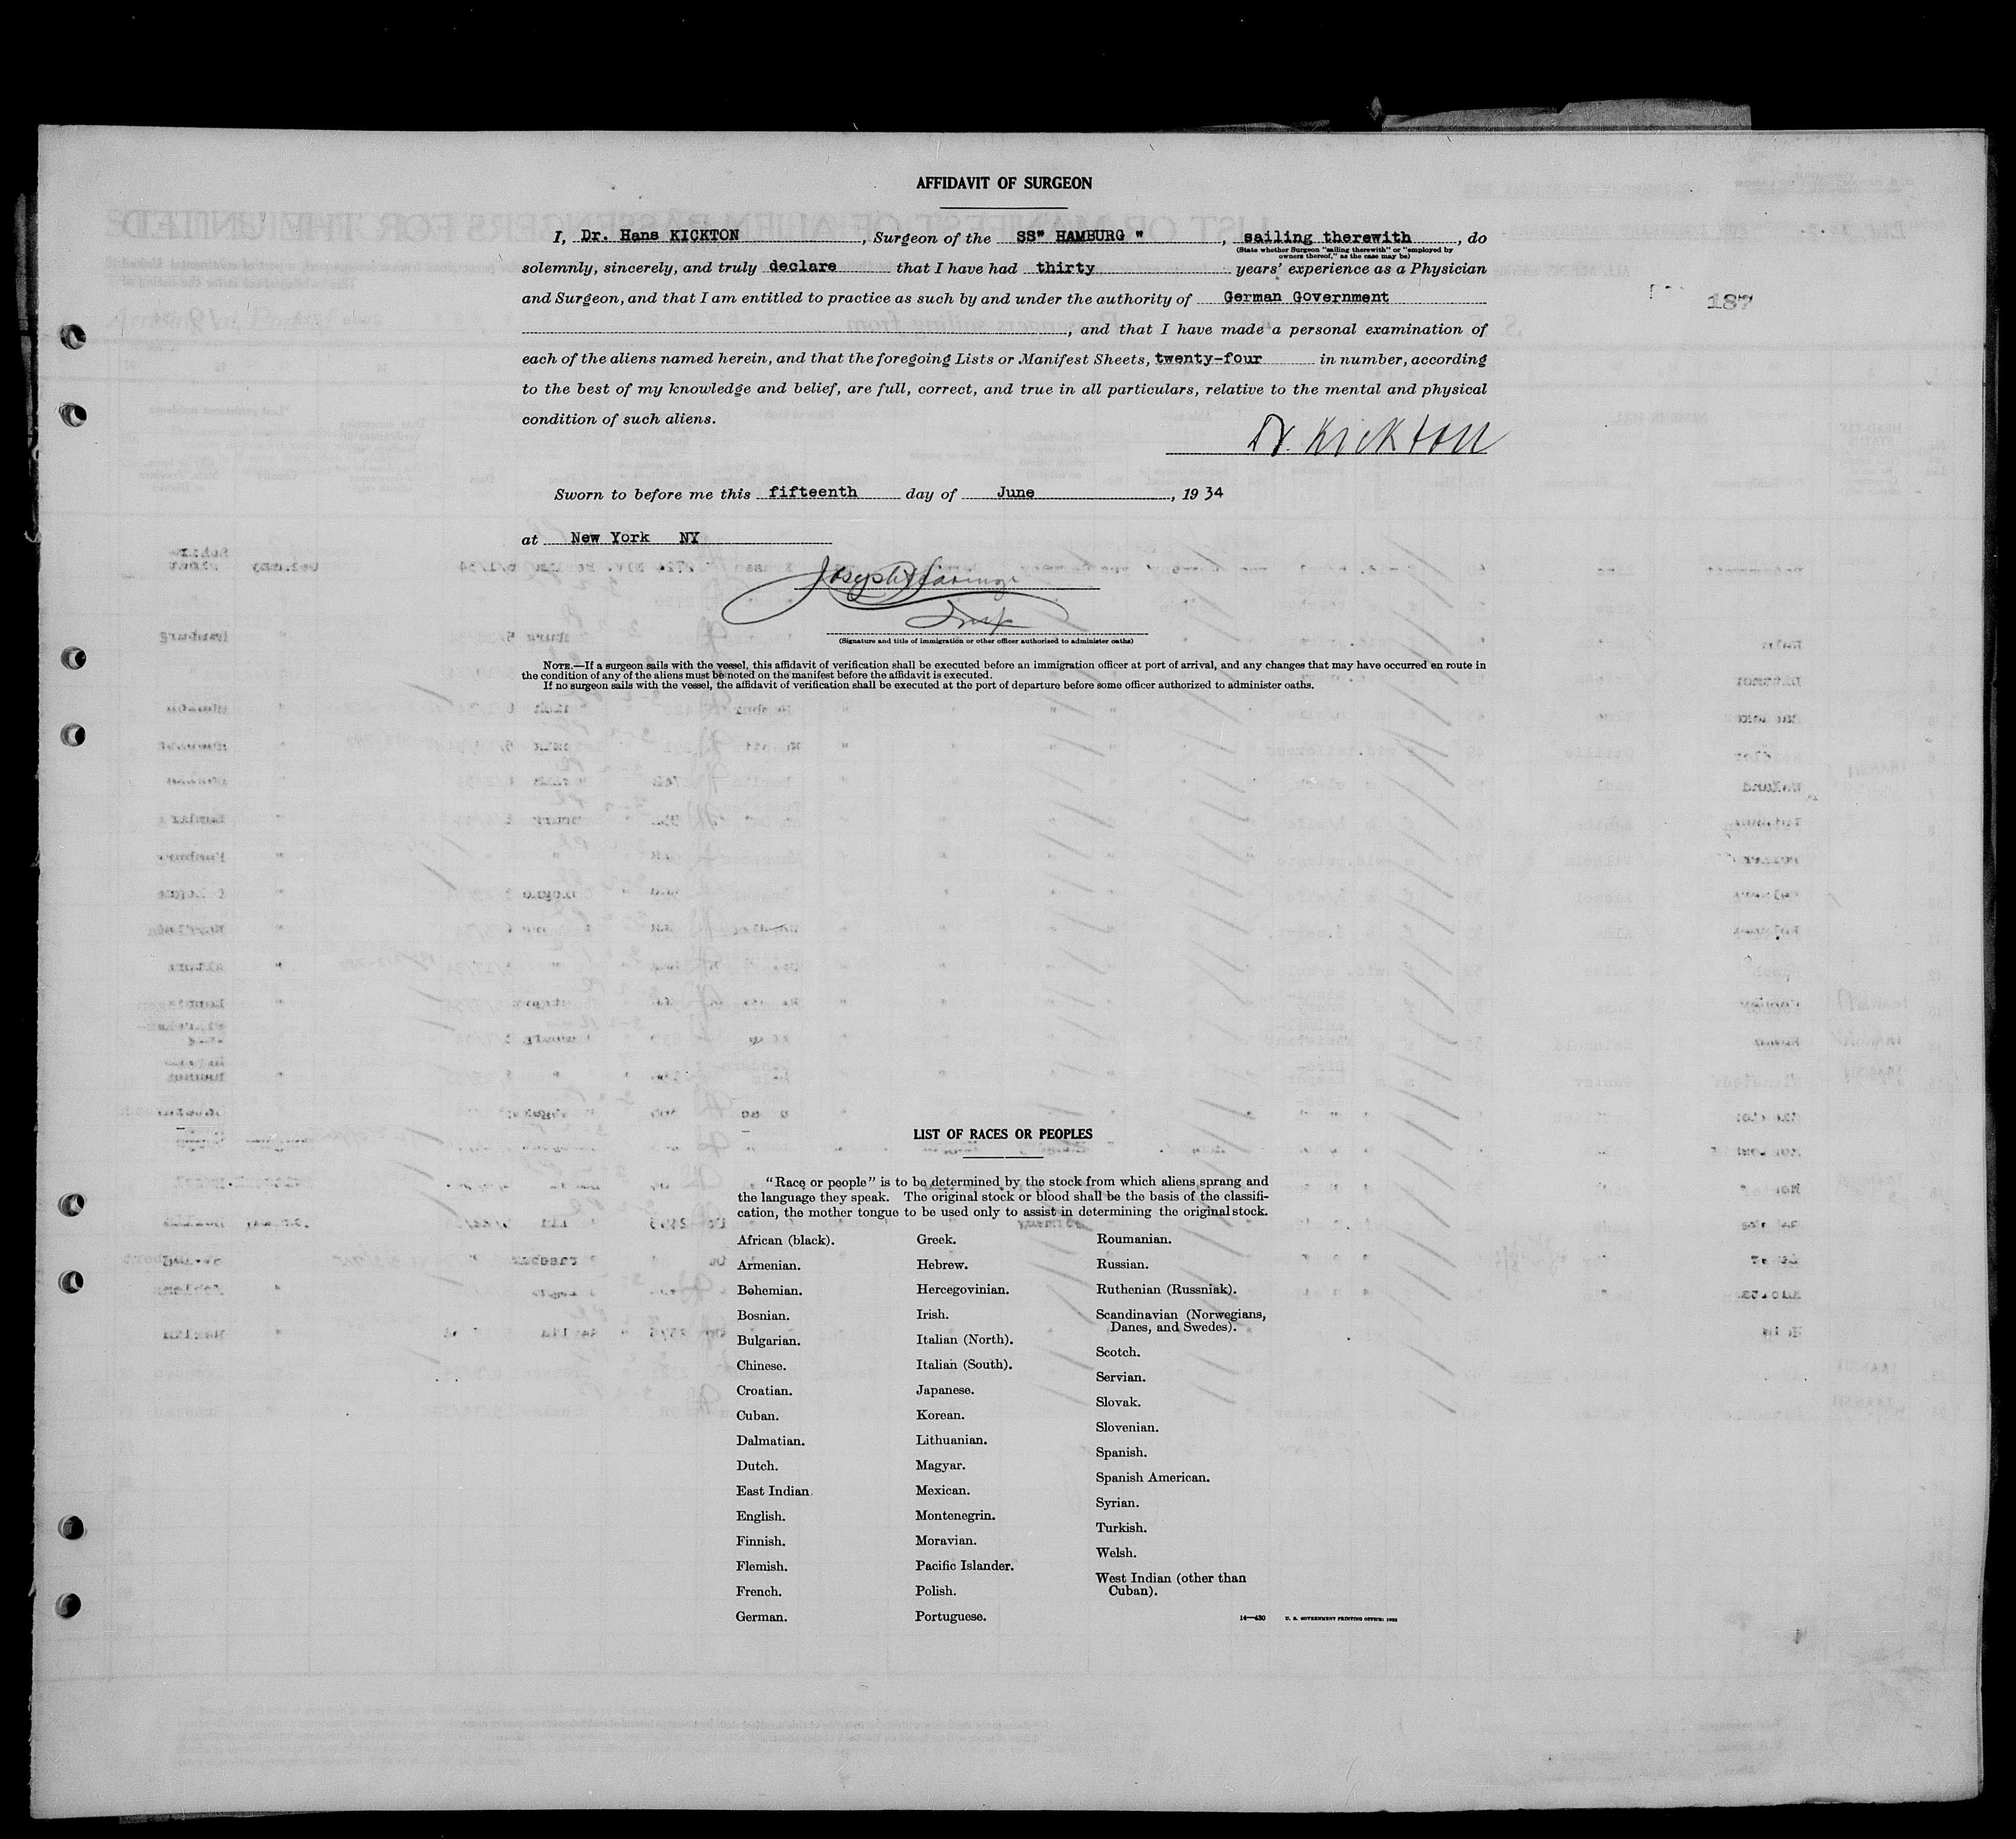 AFFIDAVIT OF SURGEON
I, Dr. Hans KICKTON, Surgeon of the SS" HAMBURG ", sailing therewith, do
(State whether Surgeon "sailing therewith" or "employed by
owners thereof," as the case may be)
solemnly, sincerely, and truly declare that I have had thirty years' experience as a Physician
and Surgeon, and that I am entitled to practice as such by and under the authority of German Government
187
, and that I have made a personal examination of
each of the aliens named herein, and that the foregoing Lists or Manifest Sheets, twenty-four in number, according
to the best of my knowledge and belief, are full, correct, and true in all particulars, relative to the mental and physical
condition of such aliens.
Dr. Kickton
Sworn to before me this fifteenth day of June, 1934
at New York NY
Joseph
(Signature and title of immigration or other officer authorized to administer oaths)
NOTE.—If a surgeon sails with the vessel, this affidavit of verification shall be executed before an immigration officer at port of arrival, and any changes that may have occurred en route in
the condition of any of the aliens must be noted on the manifest before the affidavit is executed.
If no surgeon sails with the vessel, the affidavit of verification shall be executed at the port of departure before some officer authorized to administer oaths.
LIST OF RACES OR PEOPLES
"Race or people" is to be determined by the stock from which aliens sprang and
the language they speak. The original stock or blood shall be the basis of the classifi-
cation, the mother tongue to be used only to assist in determining the original stock.
African (black).
Armenian.
Bohemian.
Bosnian.
Bulgarian.
Chinese.
Croatian.
Cuban.
Dalmatian.
Dutch.
East Indian
English.
Finnish.
Flemish.
French.
German.
Greek.
Hebrew.
Hercegovinian.
Irish.
Italian (North).
Italian (South).
Japanese.
Korean.
Lithuanian.
Magyar.
Mexican.
Montenegrin.
Moravian.
Pacific Islander.
Polish.
Portuguese.
Roumanian.
Russian.
Ruthenian (Russniak).
Scandinavian (Norwegians,
Danes, and Swedes).
Scotch.
Servian.
Slovak.
Slovenian.
Spanish.
Spanish American.
Syrian.
Turkish.
Welsh.
West Indian (other than
Cuban).
14—430 U. S. GOVERNMENT PRINTING OFFICE: 1933